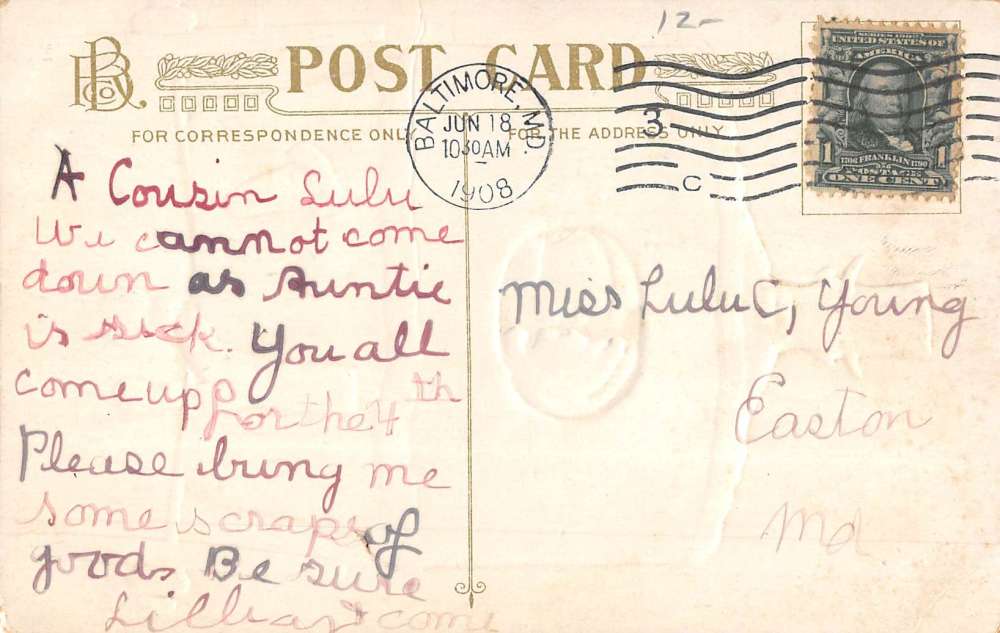 12-
BB Co.
POST CARD
FOR CORRESPONDENCE ONLY
FOR THE ADDRESS ONLY
BALTIMORE, MD.
JUN 18
10 30 AM
1908
3
C
SERIES 1902
UNITED STATES OF
AMERICA
1706 FRANKLIN 1790
POSTAGE
1 ONE CENT 1
A Cousin Lulu
We cannot come
down as Auntie
is sick. You all
come upp for the 4th
Please bring me
some scraps of
goods Be sure
Lillian & come
Miss Lulu C, Young
Easton
Md